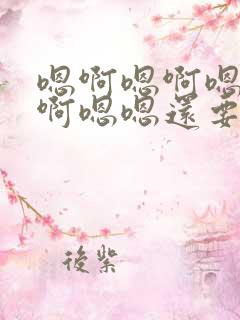 嗯啊嗯啊嗯
啊嗯嗯還要
後紫